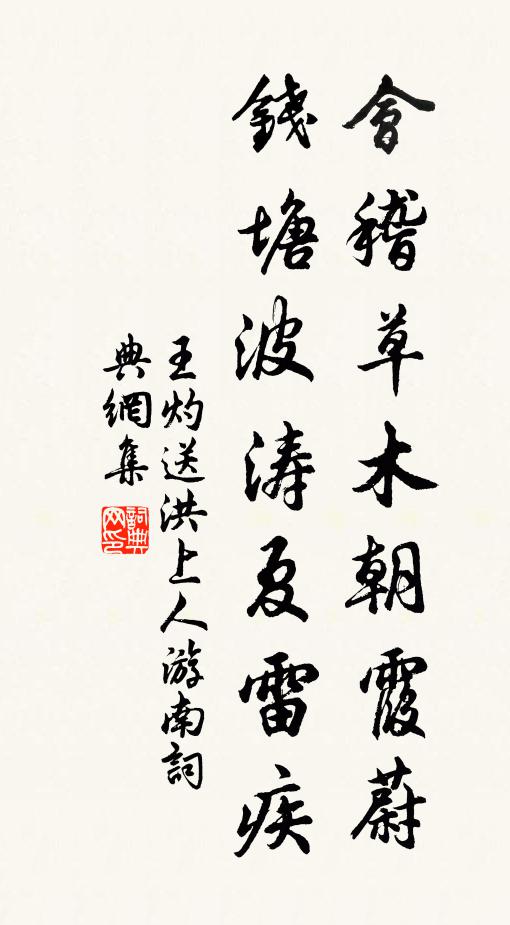 會稽草木朝霞蔚
錢塘波濤夏雷疾
王灼送洪上人游南詞
典網集
詞典网印